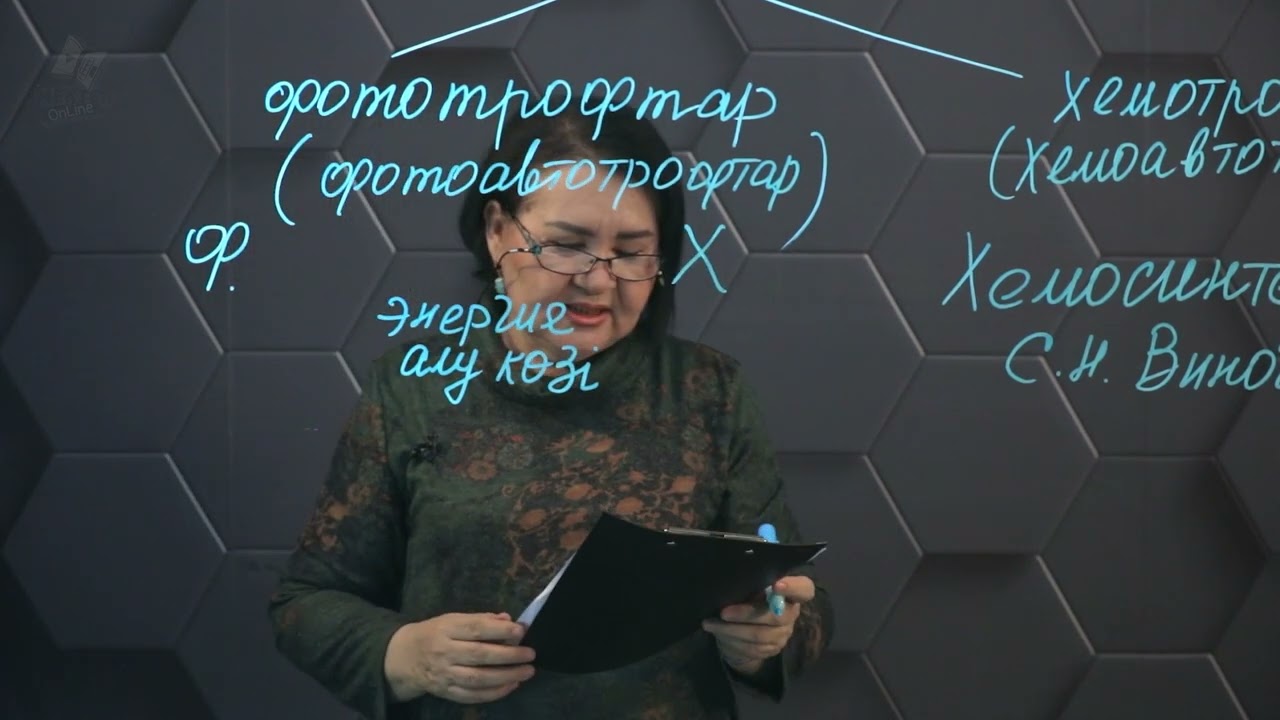 фототрофтар
(фотоавтотрофтар)
ф.
Х
энергия
алу көзі
хемотро
(хемоавтот
Хемосинте
С.Н. Вино
OnLine